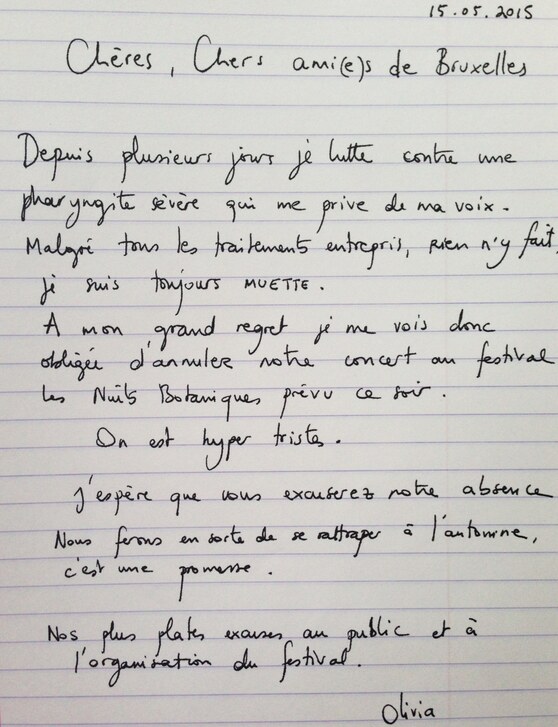 15.05.2015
Chères, Chers ami(e)s de Bruxelles
Depuis plusieurs jours je lutte contre une
pharyngite sévère qui me prive de ma voix.
Malgré tous les traitements entrepris, rien n'y fait,
je suis toujours MUETTE.
A mon grand regret je me vois donc
obligée d'annuler notre concert au festival
les Nuits Botaniques prévu ce soir.
On est hyper tristes.
J'espère que vous excuserez notre absence
Nous ferons en sorte de se rattraper à l'automne,
c'est une promesse.
Nos plus plates excuses au public et à
l'organisation du festival.
Olivia